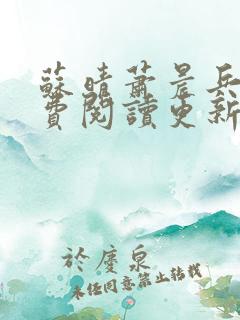 蘇晴蕭晨兵
費閱讀更新
於慶泉
未經同意禁止轉載